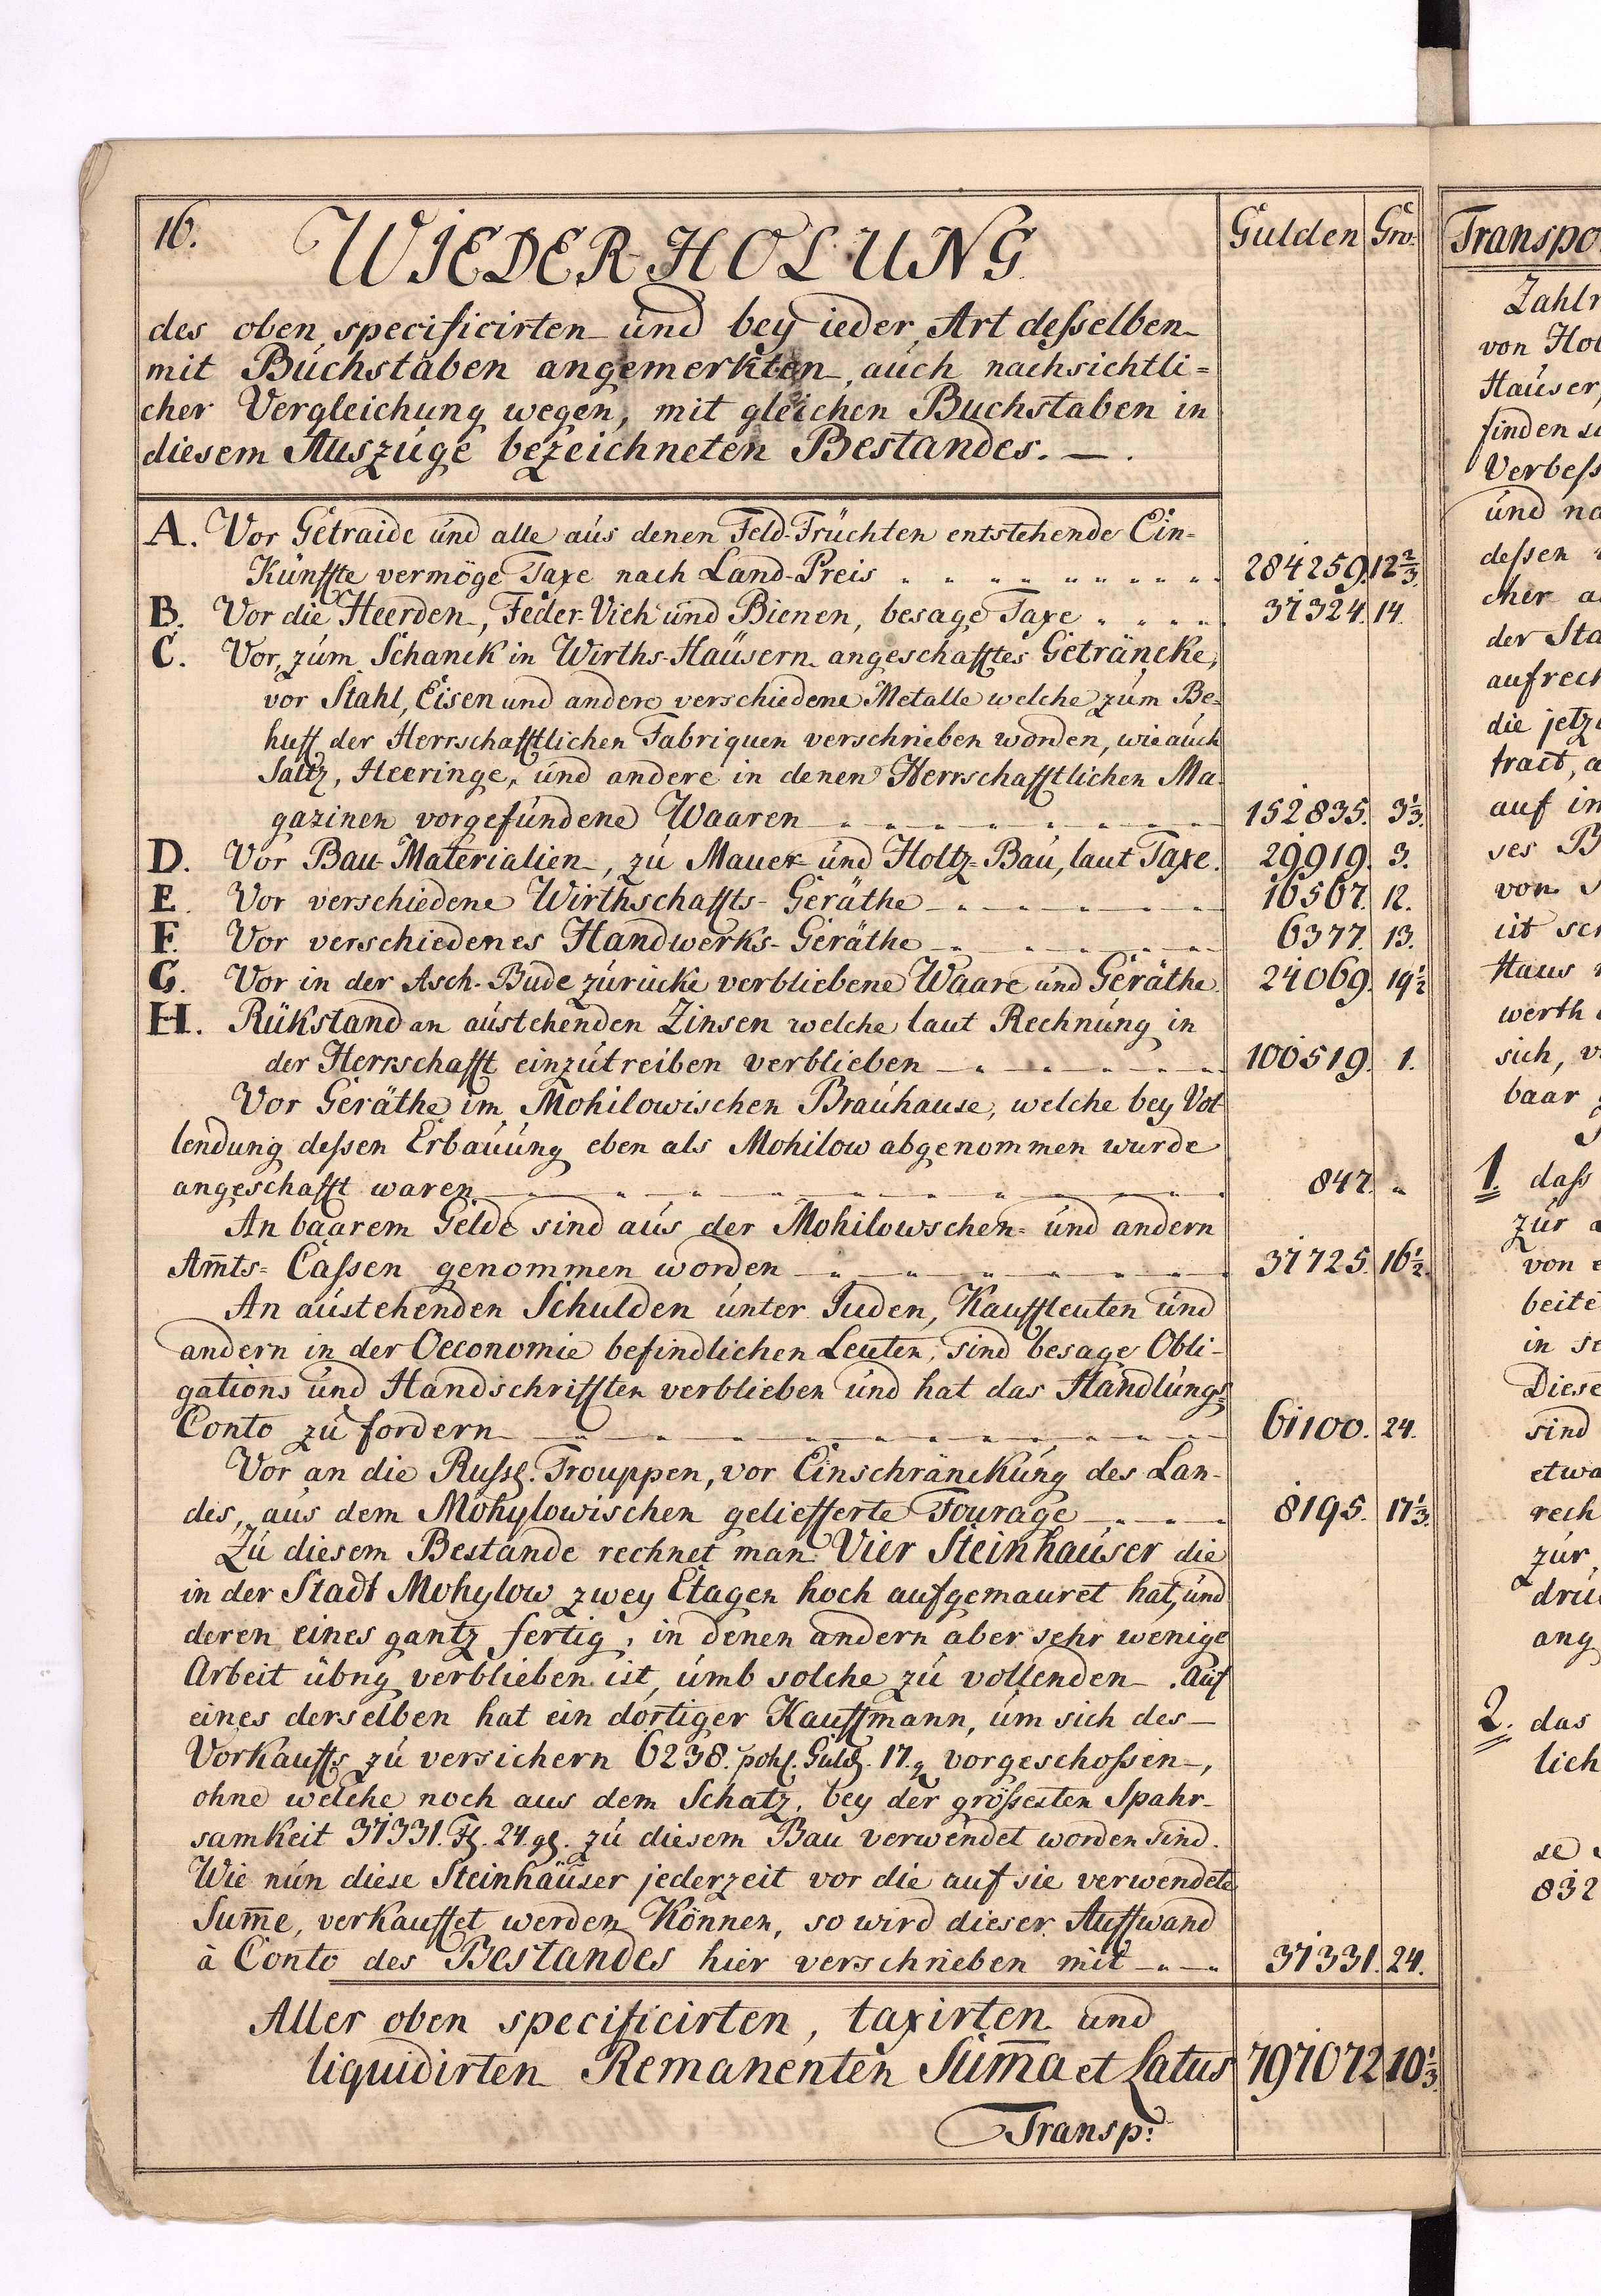 16. WIEDER-HOLUNG Gulden Gro:
des oben specificirten und bey ieder Art deßelben
mit Buchstaben angemerkten, auch nachsichtli=
cher Vergleichung wegen, mit gleichen Buchstaben in
diesem Auszuge bezeichneten Bestandes. — .
A. Vor Getraide und alle aus denen Feld-Früchten entstehende Ein=
Künffte vermöge Taxe nach Land-Preis 284259. 12 2/3.
B. Vor die Heerden, Feder-Vieh und Bienen, besage Taxe 37324. 14.
C. Vor, zum Schanck in Wirths-Häusern angeschafftes Geträncke,
vor Stahl, Eisen und andere verschiedene Metalle welche zum Be=
huff der Herrschafftlichen Fabriquen verschrieben worden, wie auch
Saltz, Heeringe, und andere in denen Herrschafftlichen Ma=
gazinen vorgefundene Waaren 152835. 3 1/3.
D. Vor Bau-Materialien, zu Mauer- und Holtz-Bau, laut Taxe. 29919. 3.
E. Vor verschiedene Wirthschaffts-Geräthe 16567. 12.
F. Vor verschiedenes Handwerks-Geräthe 6377. 13.
G. Vor in der Asch-Bude zurücke verbliebene Waare und Geräthe. 24069. 19 1/2
H. Rükstand an austehenden Zinsen welche laut Rechnung in
der Herrschafft einzutreiben verblieben 100519. 1.
Vor Geräthe im Mohilowischen Brauhause, welche bey Vol=
lendung deßen Erbauung eben als Mohilow abgenommen wurde
angeschafft waren 847. "
An baarem Gelde sind aus der Mohilowschen= und andern
Am̅ts= Caßen genommen worden 37725. 16 1/2.
An austehenden Schulden unter Juden, Kauffleuten und
andern in der Oeconomie befindlichen Leuten, sind besage Obli=
gations und Handschrifften verblieben und hat das Handlungs=
Conto zu fordern 61100. 24.
Vor an die Rußs. Trouppen, vor Einschränckung des Lan=
des, aus dem Mohylowischen gelieferte Fourage 8195. 17 1/3.
Zu diesem Bestande rechnet man Vier Steinhäuser die
in der Stadt Mohylow zwey Etagen hoch aufgemauret hat, und
deren eines gantz fertig, in denen andern aber sehr wenige
Arbeit übrig verblieben ist, umb solche zu vollenden. Auf
eines derselben hat ein dortiger Kauffmann, um sich des
Vorkauffs zu versichern 6238. pohl. Guld. 17. g vorgeschoßen,
ohne welche noch aus dem Schatz, bey der größesten Spahr=
samkeit 37331. Fl. 24. gl. zu diesem Bau verwendet worden sind.
Wie nun diese Steinhäuser jederzeit vor die auf sie verwendete
Sum̅e, verkauffet werden Können, so wird dieser Auffwand
à Conto des Bestandes hier verschrieben mit 37331. 24.
Aller oben specificirten, taxirten und
liquidirten Remanenten Sum̅a et Latus 797072 10 1/3.
Transp:
Transpo
Zahlr
von Hol
Häuser,
finden s
Verbeß
und na
deßen
cher a
der Sta
aufrech
die jetz
tract, a
auf im
ses B
von
ist
Haus
werth
sich, v
baar
1. daß
zur
von
beite
in se
Diese
sind
etwa
rech
zur
drü
ang
2. das
lich
se
832